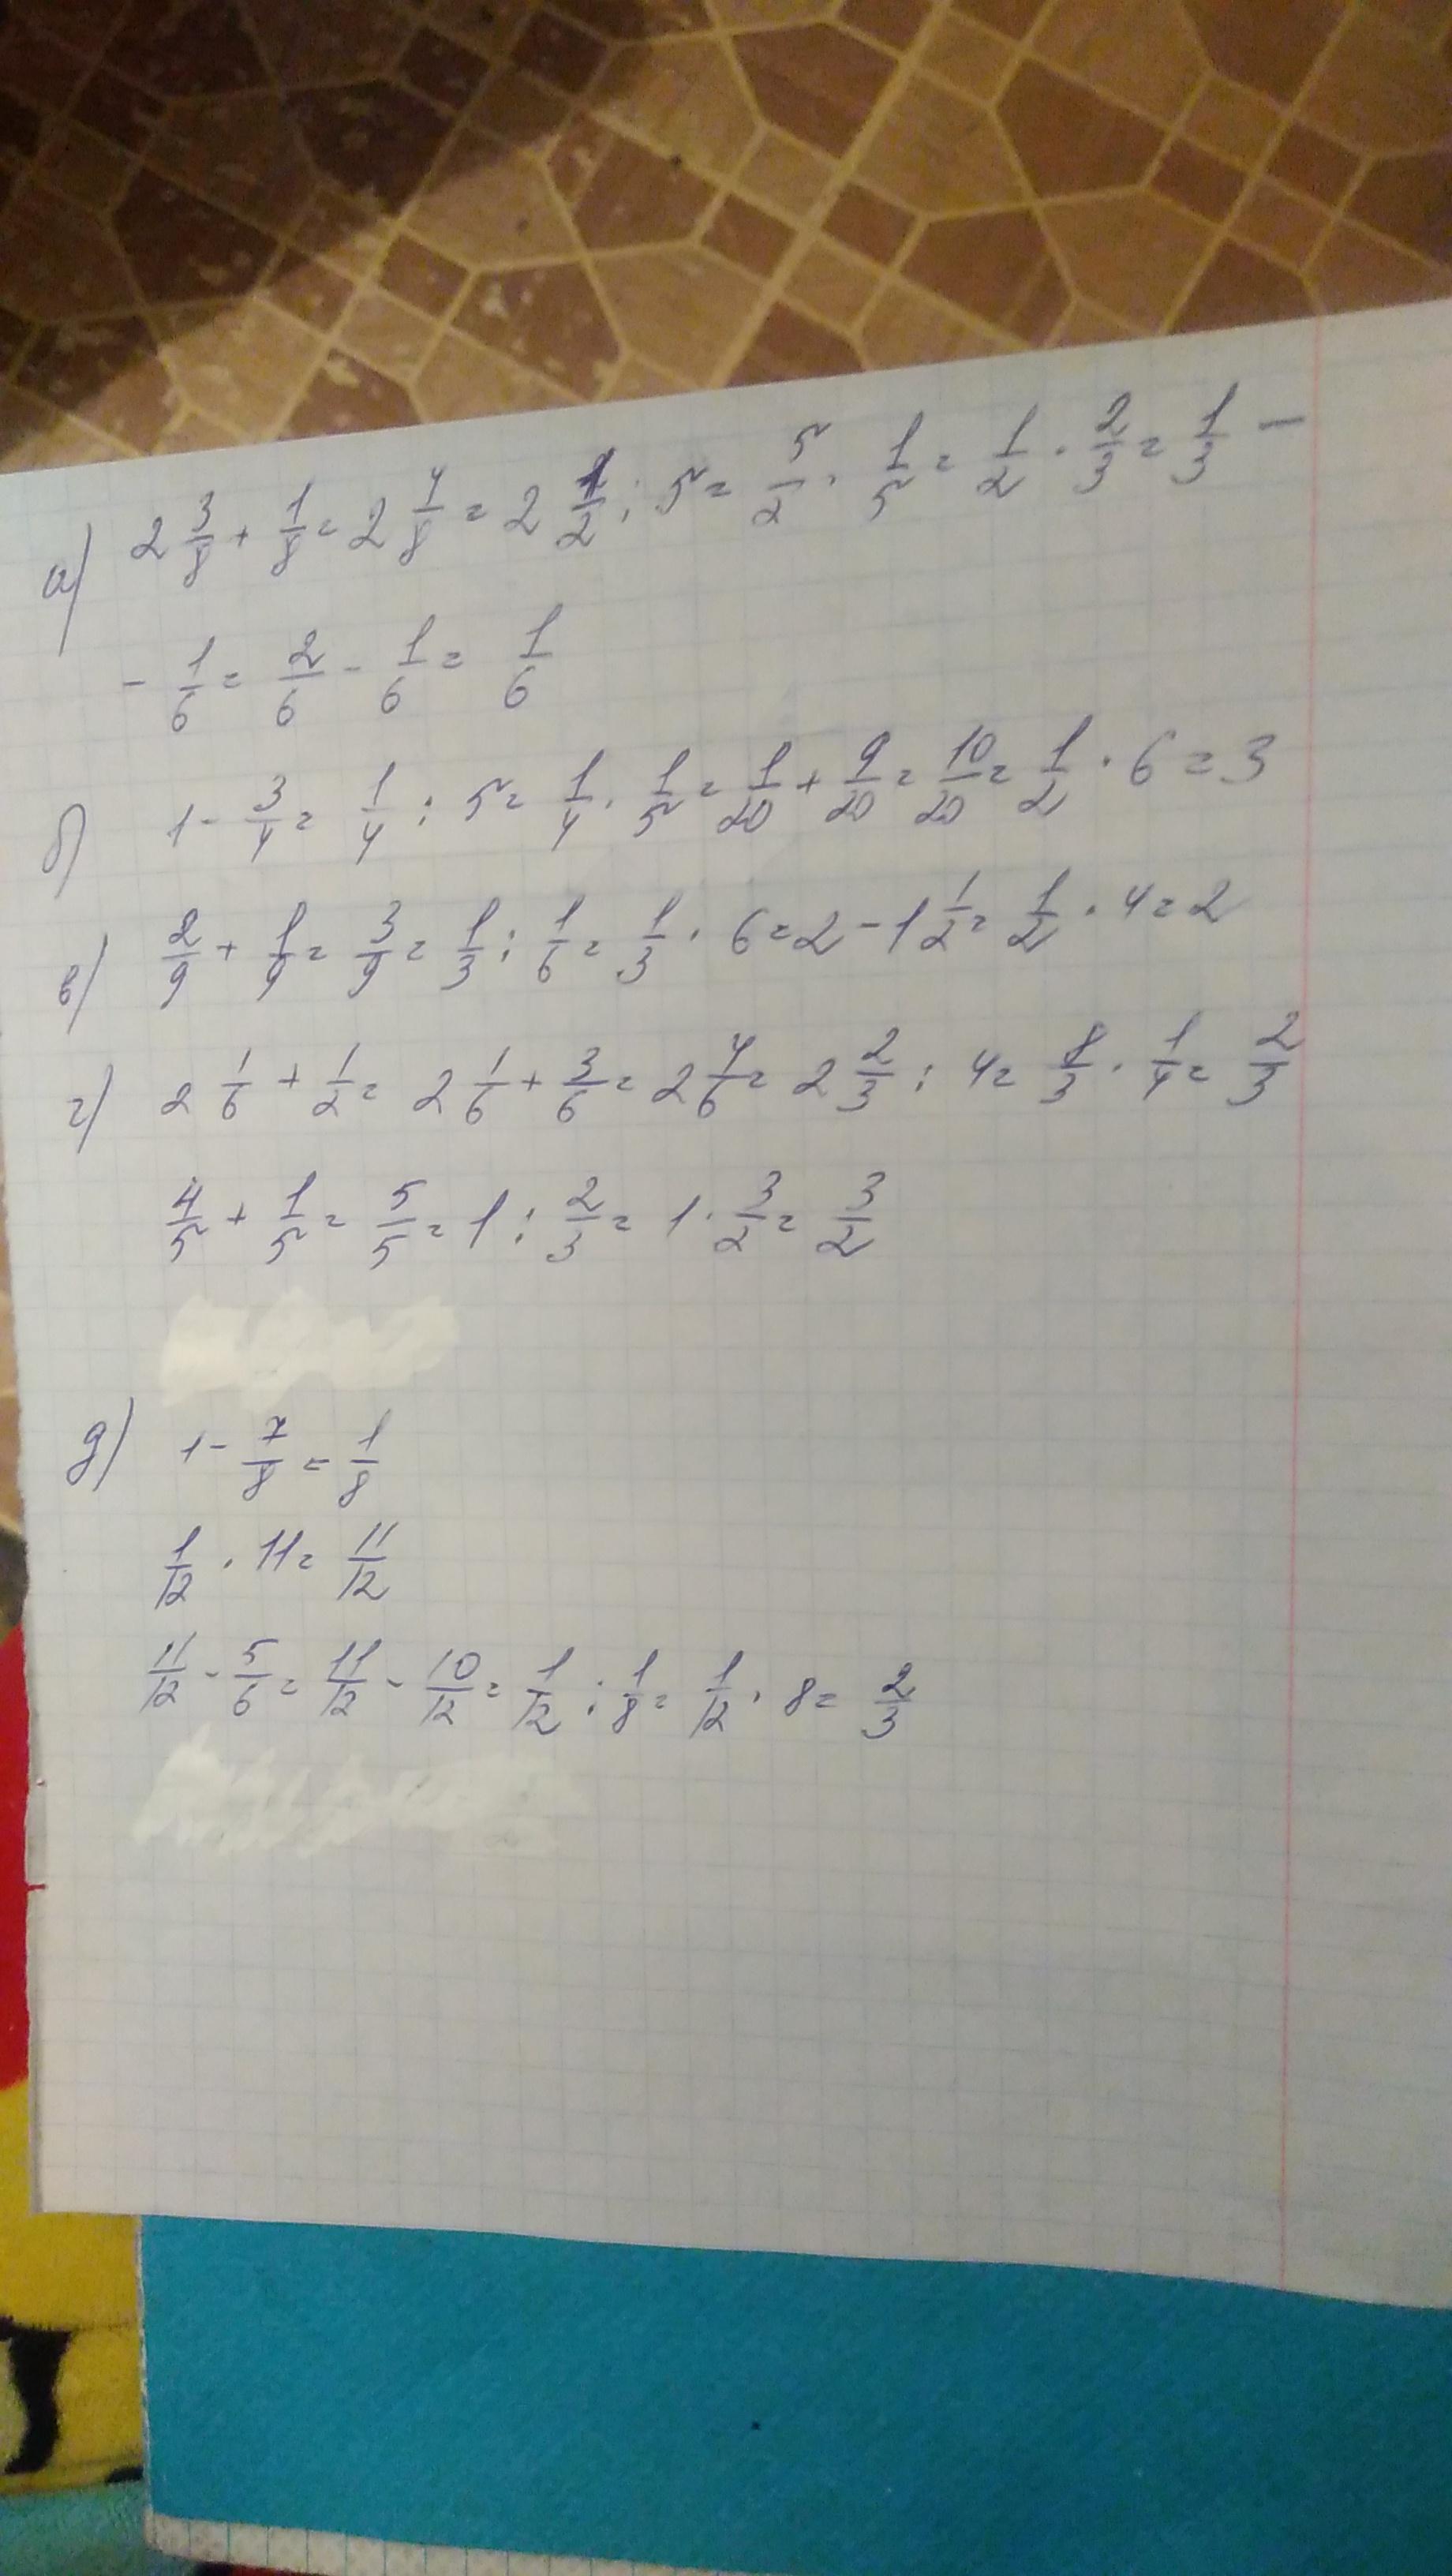 а) 2 3/8 + 1/8 = 2 4/8 = 2 1/2 : 5 = 5/2 · 1/5 = 1/2 · 2/3 = 1/3 −
− 1/6 = 2/6 − 1/6 = 1/6
б) 1 − 3/4 = 1/4 : 5 = 1/4 · 1/5 = 1/20 + 9/20 = 10/20 = 1/2 · 6 = 3
в) 2/9 + 1/9 = 3/9 = 1/3 : 1/6 = 1/3 · 6 = 2 − 1 1/2 = 1/2 · 4 = 2
г) 2 1/6 + 1/2 = 2 1/6 + 3/6 = 2 4/6 = 2 2/3 : 4 = 8/3 · 1/4 = 2/3
4/5 + 1/5 = 5/5 = 1 : 2/3 = 1 · 3/2 = 3/2
д) 1 − 7/8 = 1/8
1/12 · 11 = 11/12
11/12 − 5/6 = 11/12 − 10/12 = 1/12 : 1/8 = 1/12 · 8 = 2/3